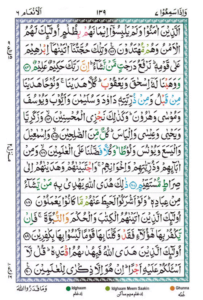 وَاِذَا سَمِعُوْا ٧ ١٣٩ اَلْاَنْعَام ٦
اَلَّذِيْنَ اٰمَنُوْا وَلَمْ يَلْبِسُوْۤا اِيْمَانَهُمْ بِظُلْمٍ اُولٰٓئِكَ لَهُمُ
الْاَمْنُ وَهُمْ مُّهْتَدُوْنَ وَتِلْكَ حُجَّتُنَاۤ اٰتَيْنٰهَاۤ اِبْرٰهِيْمَ
عَلٰى قَوْمِهٖ نَرْفَعُ دَرَجٰتٍ مَّنْ نَّشَآءُ اِنَّ رَبَّكَ حَكِيْمٌ عَلِيْمٌ
وَوَهَبْنَا لَهٗۤ اِسْحٰقَ وَيَعْقُوْبَ كُلًّا هَدَيْنَا وَنُوْحًا هَدَيْنَا
مِنْ قَبْلُ وَمِنْ ذُرِّيَّتِهٖ دَاوٗدَ وَسُلَيْمٰنَ وَاَيُّوْبَ وَيُوْسُفَ
وَمُوْسٰى وَهٰرُوْنَ وَكَذٰلِكَ نَجْزِى الْمُحْسِنِيْنَ وَزَكَرِيَّا
وَيَحْيٰى وَعِيْسٰى وَاِلْيَاسَ كُلٌّ مِّنَ الصّٰلِحِيْنَ وَاِسْمٰعِيْلَ
وَالْيَسَعَ وَيُوْنُسَ وَلُوْطًا وَكُلًّا فَضَّلْنَا عَلَى الْعٰلَمِيْنَ وَمِنْ
اٰبَآئِهِمْ وَذُرِّيّٰتِهِمْ وَاِخْوَانِهِمْ وَاجْتَبَيْنٰهُمْ وَهَدَيْنٰهُمْ اِلٰى
صِرَاطٍ مُّسْتَقِيْمٍ ذٰلِكَ هُدَى اللّٰهِ يَهْدِىْ بِهٖ مَنْ يَّشَآءُ
مِنْ عِبَادِهٖ وَلَوْ اَشْرَكُوْا لَحَبِطَ عَنْهُمْ مَّا كَانُوْا يَعْمَلُوْنَ
اُولٰٓئِكَ الَّذِيْنَ اٰتَيْنٰهُمُ الْكِتٰبَ وَالْحُكْمَ وَالنُّبُوَّةَ فَاِنْ
يَّكْفُرْ بِهَا هٰٓؤُلَآءِ فَقَدْ وَكَّلْنَا بِهَا قَوْمًا لَّيْسُوْا بِهَا بِكٰفِرِيْنَ
اُولٰٓئِكَ الَّذِيْنَ هَدَى اللّٰهُ فَبِهُدٰىهُمُ اقْتَدِهْ قُلْ لَّاۤ
اَسْئَلُكُمْ عَلَيْهِ اَجْرًا اِنْ هُوَ اِلَّا ذِكْرٰى لِلْعٰلَمِيْنَ
Idghaam Idghaam Meem Saakin Ghunna